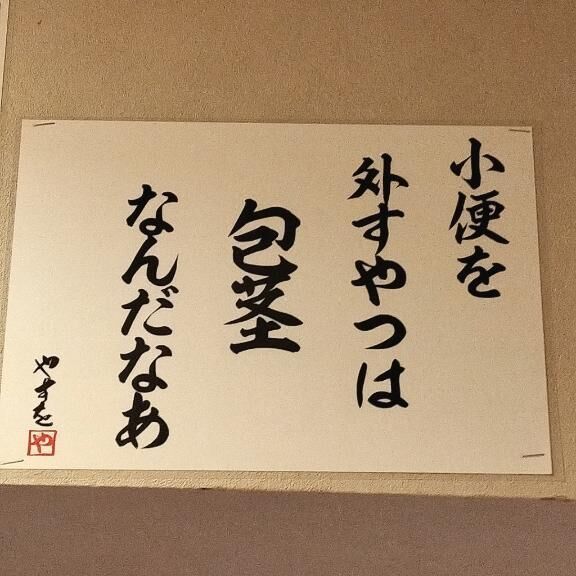 小便を
外すやつは
包茎
なんだなあ
やすを
や